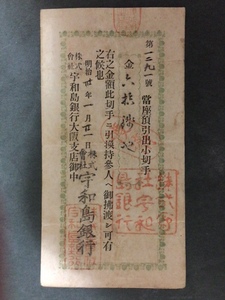 第一二九一號
當座預引出小切手
金六拾
右之金額此切手ニ引換持参人ヘ御拂渡シ可有
之候也
明治 年一月廿一日
株式會社宇和島銀行
株式會社宇和島銀行大阪支店御中
株式會
社宇和
島銀行